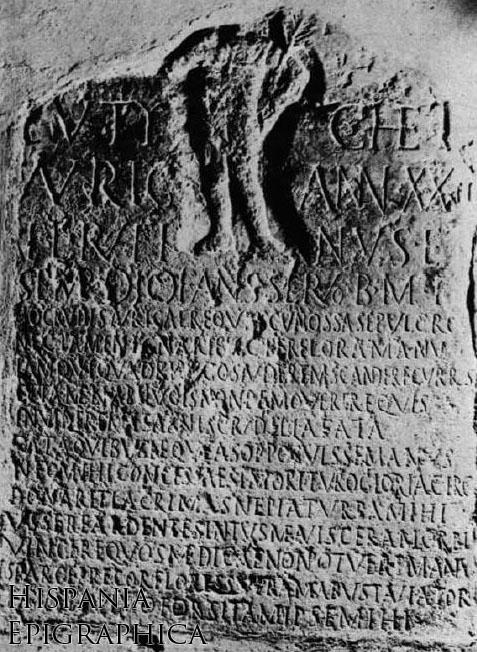 EVTY CHETI
AVRIG ANN XXII
FL RVFI NVS E
SEMP DIOFANIS SER B M F
HOC RVDIS AVRIGAE REQVIESCVNT OSSA SEPVLCRO
NEC TAMEN IGNARI FLECTERE LORA MANV
IAM QVI QVADRIIVGOS AVDEREM SCANDERE CVRRVS
ET TAMEN A BIIVGIS NON REMOVERER EQVIS
INVIDERE MEIS ANNIS CRVDELIA FATA
FATA QVIBVS NEQVEAS OPPOSVISSE MANVS
NEC MIHI CONCESSA EST MORITVRO GLORIA CIRCI
DONARET LACRIMAS NE PIA TVRBA MIHI
VSSERE ARDENTES INTVS MEA VISCERA MORBI
VINCERE QVOS MEDICAE NON POTVERE MANVS
SPARGE PRECOR FLORES SVPRA MEA BVSTA VIATOR
FORSITAM IPSE MIHI
Hispania
Epigraphica